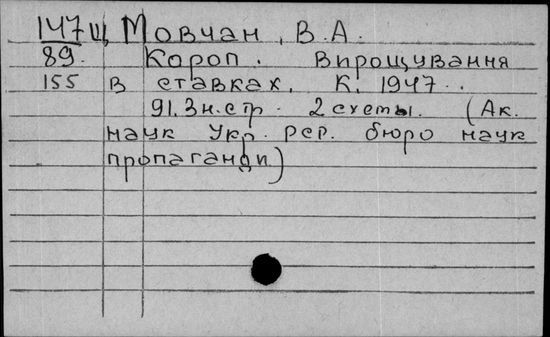 147 Ц Мовчан, В.А.
89. Короп. Впрощування
155 в ставках. К. 1947.
91. 3 н. стр. 2 схеты. (Ак.
наук Укр. рср. бюро наук
пропаганди)